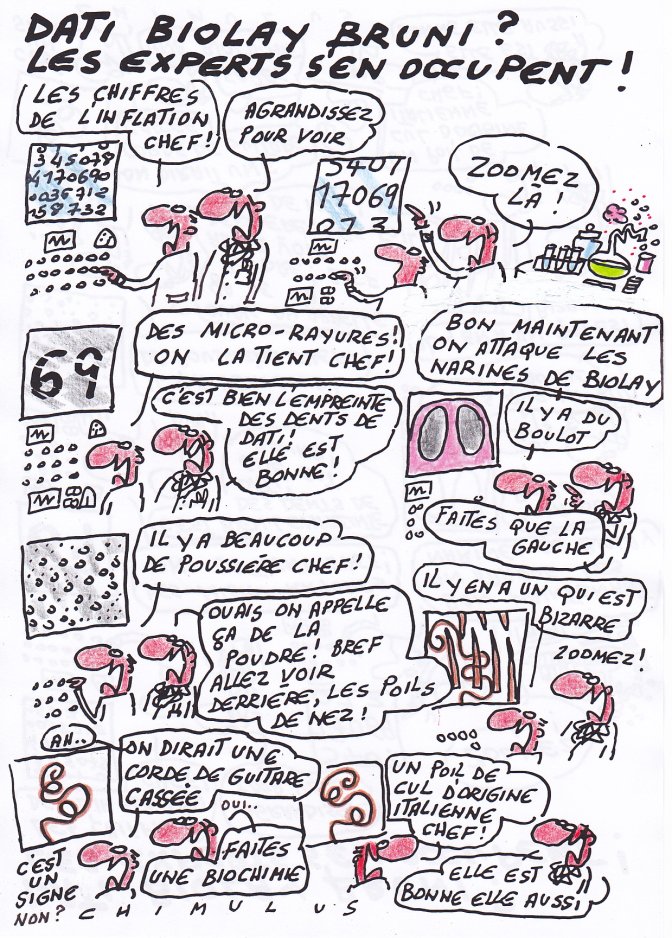 DATI BIOLAY BRUNI ?
LES EXPERTS S'EN OCCUPENT !
LES CHIFFRES
DE L'INFLATION
CHEF !
AGRANDISSEZ
POUR VOIR
345078
4170690
0036712
158732
5407
17069
073
ZOOMEZ
LÀ !
69
DES MICRO-RAYURES !
ON LA TIENT CHEF !
C'EST BIEN L'EMPREINTE
DES DENTS DE
DATI !
ELLE EST
BONNE !
BON MAINTENANT
ON ATTAQUE LES
NARINES DE BIOLAY
IL Y A DU
BOULOT
FAITES QUE LA
GAUCHE
IL Y A BEAUCOUP
DE POUSSIÈRE CHEF !
OUAIS ON APPELLE
ÇA DE LA
POUDRE ! BREF
ALLEZ VOIR
DERRIÈRE, LES POILS
DE NEZ !
IL Y EN A UN QUI EST
BIZARRE
ZOOMEZ !
AH..
ON DIRAIT UNE
CORDE DE GUITARE
CASSÉE
OUI..
FAITES
UNE BIOCHIMIE
UN POIL DE
CUL D'ORIGINE
ITALIENNE
CHEF !
ELLE EST
BONNE ELLE AUSSI
C'EST
UN
SIGNE
NON ?
CHIMULUS